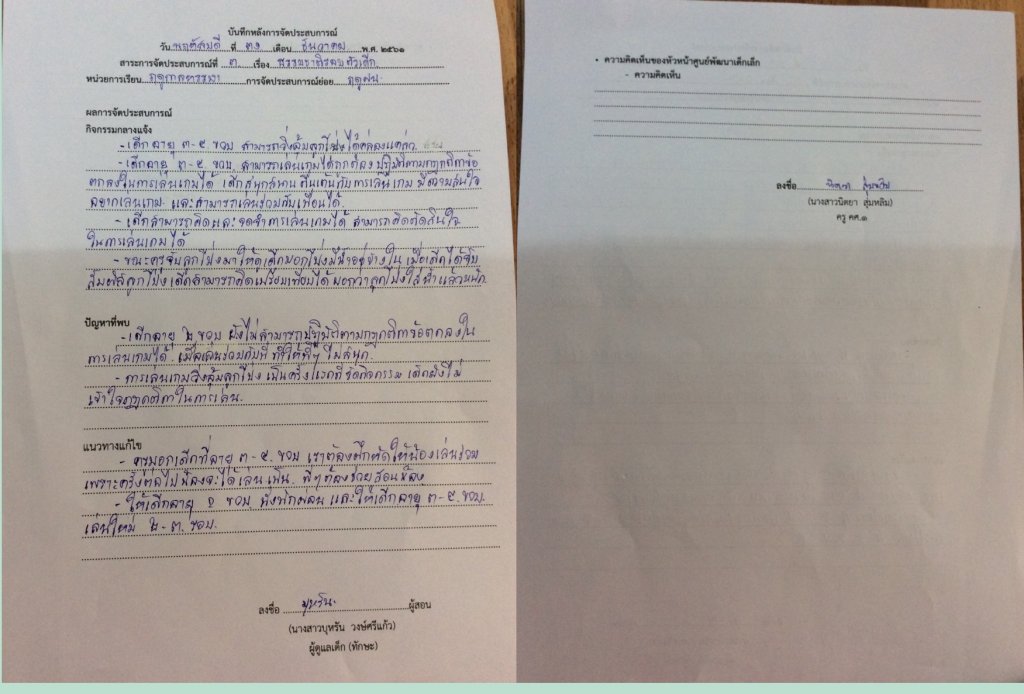 บันทึกหลังการจัดประสบการณ์
วัน พฤหัสบดี ที่ ๓๐ เดือน ธันวาคม พ.ศ. ๒๕๖๑
สาระการจัดประสบการณ์ที่ ๓. เรื่อง ธรรมชาติรอบตัวเด็ก
หน่วยการเรียน ฤดูกาลหรรษา การจัดประสบการณ์ย่อย ฤดูฝน
ผลการจัดประสบการณ์
กิจกรรมกลางแจ้ง
- เด็กอายุ ๓ - ๕ ขวบ สามารถวิ่งอุ้มลูกโป่งได้คล่องแคล่ว
- เด็กอายุ ๓ - ๕ ขวบ สามารถเล่นเกมได้ถูกต้อง ปฏิบัติตามกฎกติกาข้อ
ตกลงในการเล่นเกมได้ เด็กสนุกสนาน ตื่นเต้นกับการเล่นเกม มีความสนใจ
อยากเล่นเกม และสามารถเล่นร่วมกับเพื่อนได้.
- เด็กสามารถคิดและจดจำการเล่นเกมได้ สามารถคิดตัดสินใจ
ในการเล่นเกมได้
- ขณะครูจับลูกโป่งมาให้ดูเด็กบอกโป่งมีน้ำอยู่ข้างใน เมื่อเด็กได้จับ
สัมผัสลูกโป่ง เด็กสามารถคิดเปรียบเทียบได้ บอกว่าลูกโป่งใส่น้ำแล้วหนัก
ปัญหาที่พบ
- เด็กอายุ ๒ ขวบ ยังไม่สามารถปฏิบัติตามกฎกติกาข้อตกลงใน
การเล่นเกมได้ เมื่อเล่นร่วมกับพี่ ทำให้พี่ๆ ไม่สนุก
- การเล่นเกมวิ่งอุ้มลูกโป่ง เป็นครั้งแรกที่จัดกิจกรรม เด็กยังไม่
เข้าใจกฎกติกาในการเล่น.
แนวทางแก้ไข
- ครูบอกเด็กที่อายุ ๓ - ๕. ขวบ เราต้องฝึกหัดให้น้องเล่นร่วม
เพราะครั้งต่อไปน้องจะได้เล่นเป็น. พี่ๆ ต้องช่วยสอนน้อง
- ให้เด็กอายุ ๒ ขวบ นั่งพักผ่อน และให้เด็กอายุ ๓ - ๕ ขวบ.
เล่นใหม่ ๒ - ๓. รอบ.
ลงชื่อ บุหรัน ผู้สอน
(นางสาวบุหรัน วงษ์ศรีแก้ว)
ผู้ดูแลเด็ก (ทักษะ)
• ความคิดเห็นของหัวหน้าศูนย์พัฒนาเด็กเล็ก
- ความคิดเห็น
ลงชื่อ นิตยา สุ่มหลิม
(นางสาวนิตยา สุ่มหลิม)
ครู คศ.๑